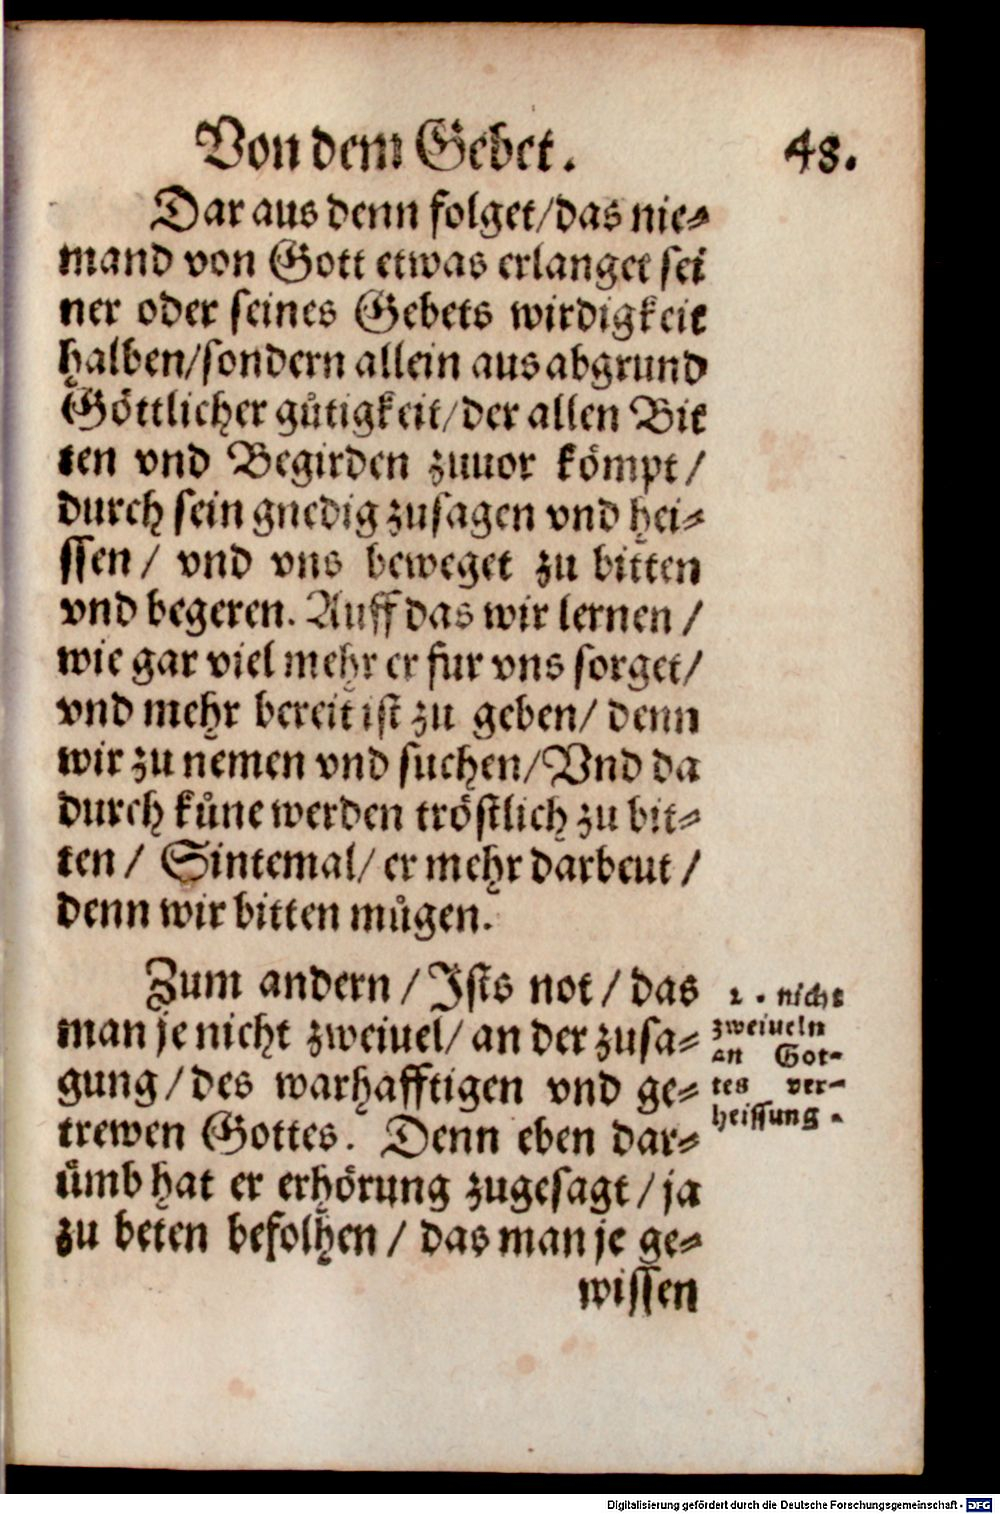 Von dem Gebet. 48.
Dar aus denn folget/das nie-
mand von Gott etwas erlanget sei
ner oder seines Gebets wirdigkeit
halben/sondern allein aus abgrund
Göttlicher gůtigkeit/der allen Bit
ten vnd Begirden zuuor kömpt/
durch sein gnedig zusagen vnd hei-
ssen/ vnd vns beweget zu bitten
vnd begeren. Auff das wir lernen/
wie gar viel mehr er fur vns sorget/
vnd mehr bereit ist zu geben/ denn
wir zu nemen vnd suchen/Vnd da
durch kůne werden tröstlich zu bit-
ten/ Sintemal/ er mehr darbeut/
denn wir bitten můgen.
Zum andern/Ists not/das
man je nicht zweiuel/ an der zusa-
gung/des warhafftigen vnd ge-
trewen Gottes. Denn eben dar-
ůmb hat er erhörung zugesagt/ja
zu beten befolhen/ das man je ge-
wissen
2. nicht
zweiueln
an Got-
tes ver-
heissung.
Digitalisierung gefördert durch die Deutsche Forschungsgemeinschaft - DFG